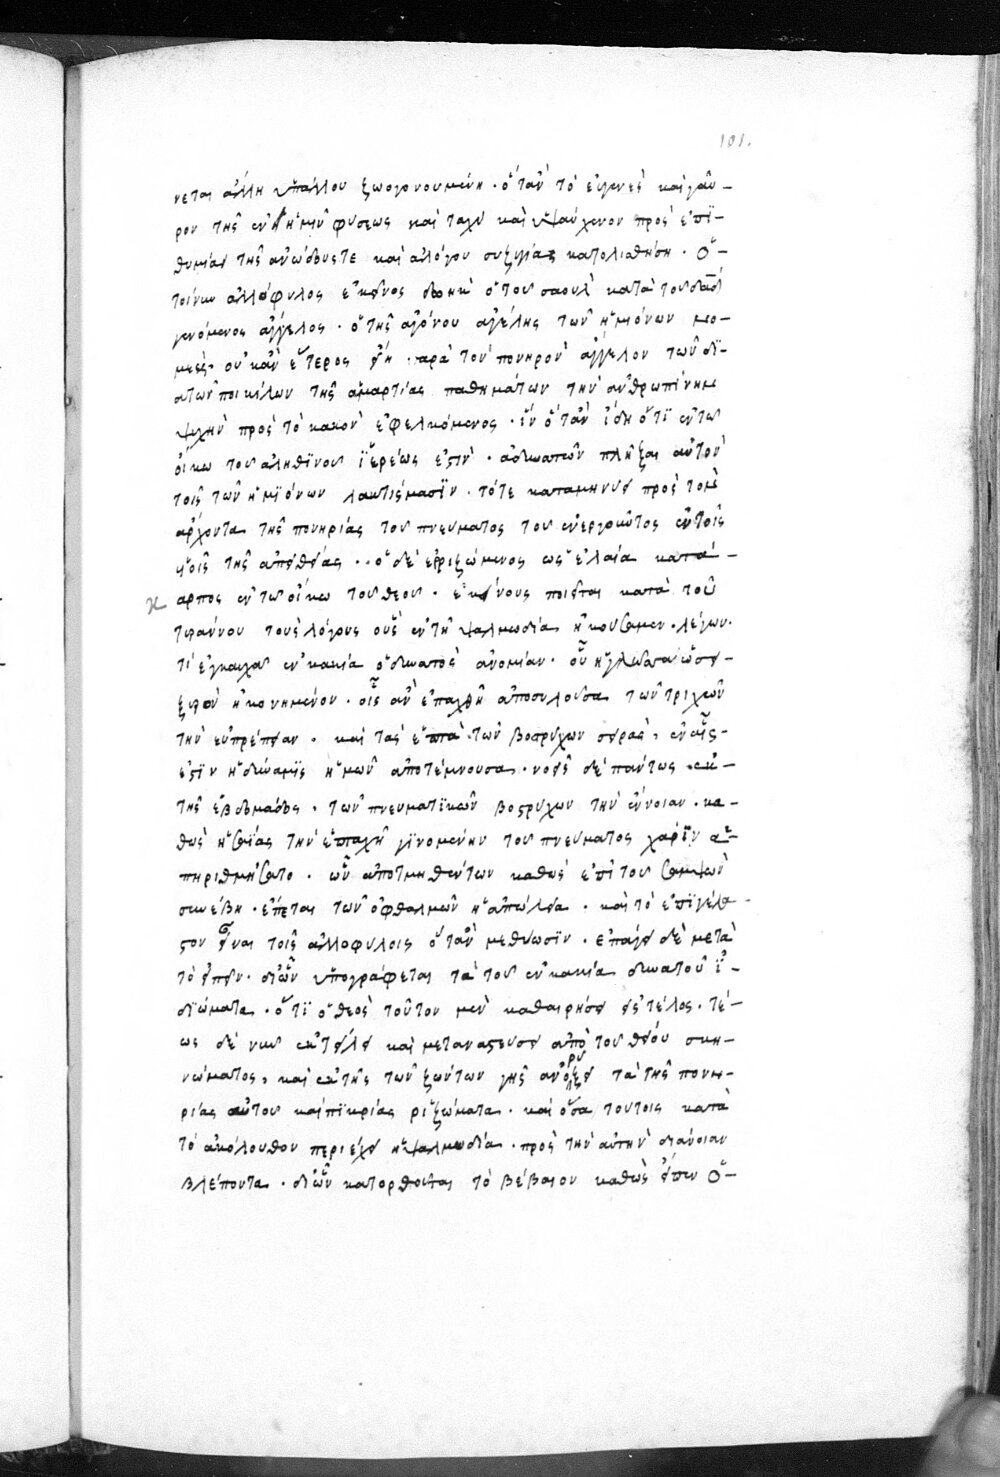 101.
νεται ἀλλη ὑπαλλου ζωογονουμένη · ὅταν τὸ εὐγενὲς καὶ γαῦ-
ρον τῆς ἐν ἡμῖν φύσεως καὶ ταχὺ καὶ ὑψαύχενον πρὸς ἐπϊ-
θυμίαν τῆς ἀνώδυς τε καὶ ἀλόγου συζυγίας κατολισθήση · ὁ
τοίνυν ἀλλόφυλος ἐκεῖνος διωηκὶ ὁ τοῦ σαουλ κατὰ τοῦ δαδ
γενόμενος ἄγγελος · ὁ τῆς ἀγόνου ἀγέλης τῶν ἡμιόνων νο-
μεὺς · οὐκ ἂν ἕτερος εἴη παρὰ τὸν πονηρὸν ἄγγελον τῶν δϊ-
α τῶν ποικίλων τῆς ἁμαρτίας παθημάτων τὴν ἀνθρωπίνην
ψυχὴν πρὸς τὸ κακὸν ἐφελκόμενος · ἣν ὅταν ἴδη ὅτϊ ἐν τῶ
οἴκω τοῦ ἀληθϊνοῦ ἱερέως ἐστὶν · ἀδυνατῶν πλῆξαι αὐτὸν
τοῖς τῶν ἡμϊόνων λακτίσμασϊν · τότε καταμηνύει πρὸς τὸν
ἄρχοντα τῆς πονηρίας τοῦ πνεύματος τοῦ ἐνεργοῦντος ἐν τοῖς
υἱοῖς τῆς ἀπειθείας · · ὁ δὲ ἐρριζωμένος ὡς ἐλαία κατά-
κ αρπος ἐν τῶ οἴκω τοῦ θεοῦ · ἐκείνους ποιεῖται κατὰ τοῦ
τυράννου τοὺς λόγους οὓς ἐν τῆ ψαλμωδία ἠκούσαμεν · λέγων ·
τί ἐγκαυχᾶ ἐν κακία ὁ δυνατὸς ἀνομίαν · οὗ ἡ γλῶσσα ὡσεὶ
ξυρὸν ἠκονημένον · οἷς ἂν ἐπαχθῆ ἀποσυλοῦσα τῶν τριχῶν
τὴν εὐπρέπειαν · καὶ τὰς ἑπτὰ τῶν βοστρύχων σειρὰς, ἐν αἷς
ἐστϊν ἡ δύναμϊς ἡμῶν ἀποτέμνουσα · νοεῖς δὲ πάντως ἐκ
τῆς ἑβδομάδος · τῶν πνευματϊκῶν βοστρύχων τὴν ἔννοιαν · κα-
θὼς ἡσαΐας τὴν ἑπταχῆ γϊνομένην τοῦ πνεύματος χάρϊν ἀ-
πηριθμήσατο · ὧν ἀποτμηθέντων καθὼς ἐπὶ τοῦ σαμψὼν
συνέβη · ἕπεται τῶν ὀφθαλμῶν ἡ ἀπώλεια · καὶ τὸ ἐπϊγέλα-
στον εἶναι τοῖς ἀλλοφύλοις ὅταν μεθύωσϊν · ἐπάγει δὲ μετὰ
τὸ εἰπεῖν · δι ὧν ὑπογράφεται τὰ τοῦ ἐν κακία δυνατοῦ ἰ-
διώματα · ὅτϊ ὁ θεὸς τοῦτον μὲν καθαιρήσει εἰς τέλος · τέ-
ως δὲ νῦν ἐκτίλει καὶ μεταναστεύσει ἀπὸ τοῦ θείου σκη-
νώματος, καὶ ἐκ τῆς τῶν ζώντων γῆς ἀνορύξει τὰ τῆς πονη-
ρίας αὐτοῦ καὶ πϊκρίας ριζώματα · καὶ ὅσα τούτοις κατὰ
τὸ ἀκόλουθον περιέχει ἡ ψαλμωδία · πρὸς τὴν αὐτὴν διάνοιαν
βλέποντα · δι ὧν κατορθοῦται τὸ βέβαιον καθὼς εἶπεν ὁ